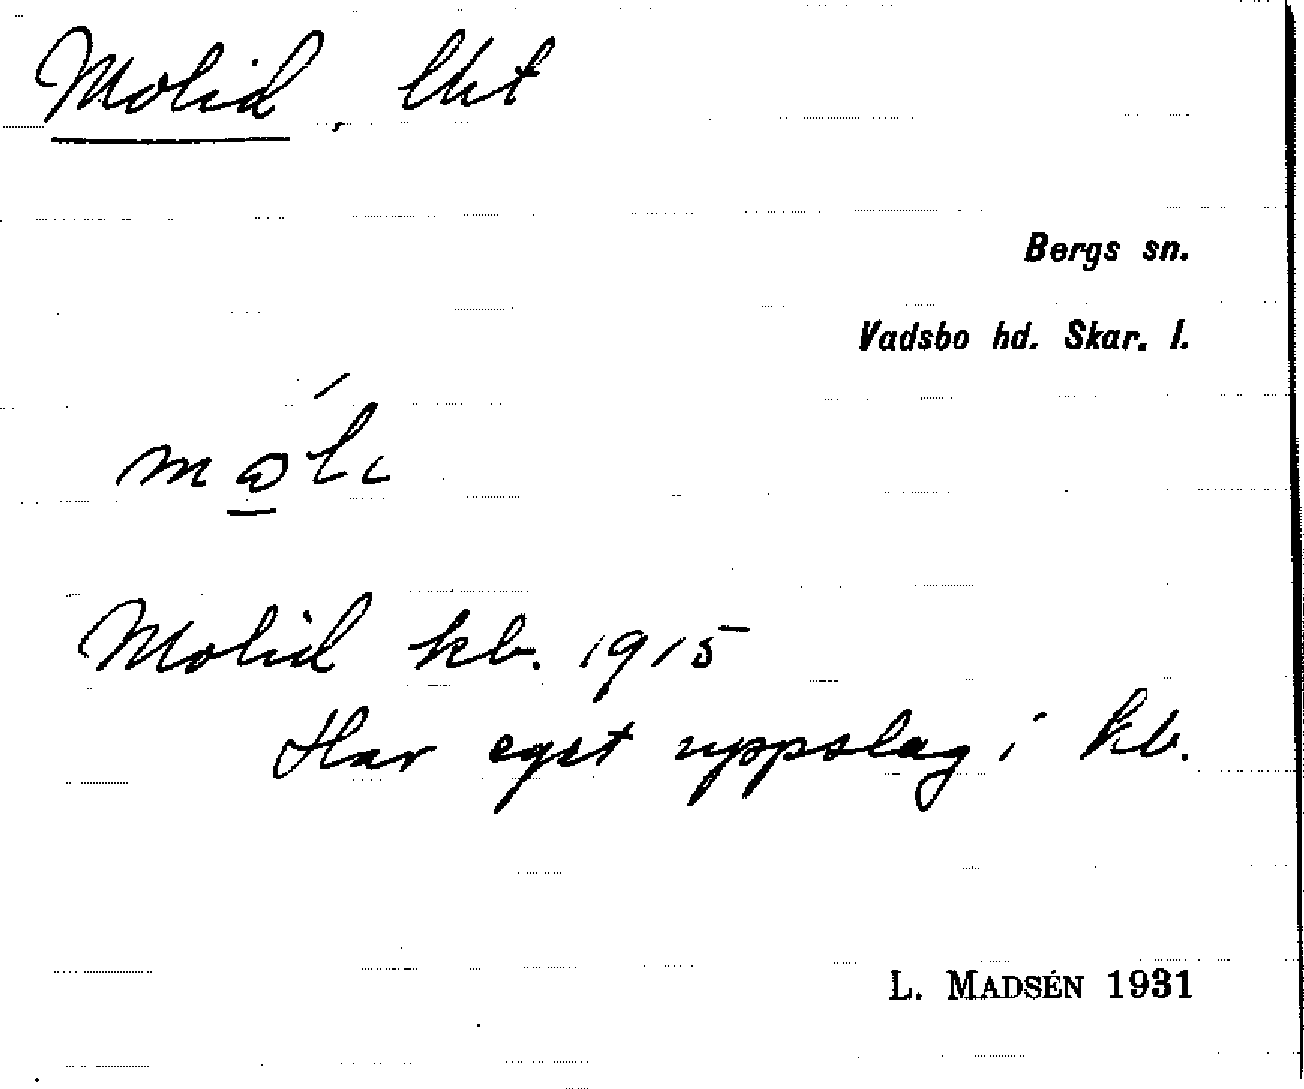 Molid, lht
Bergs sn.
Vadsbo hd. Skar. l.
Molid kb. 1915
Har eget uppslag i kb.
L. MADSÉN 1931